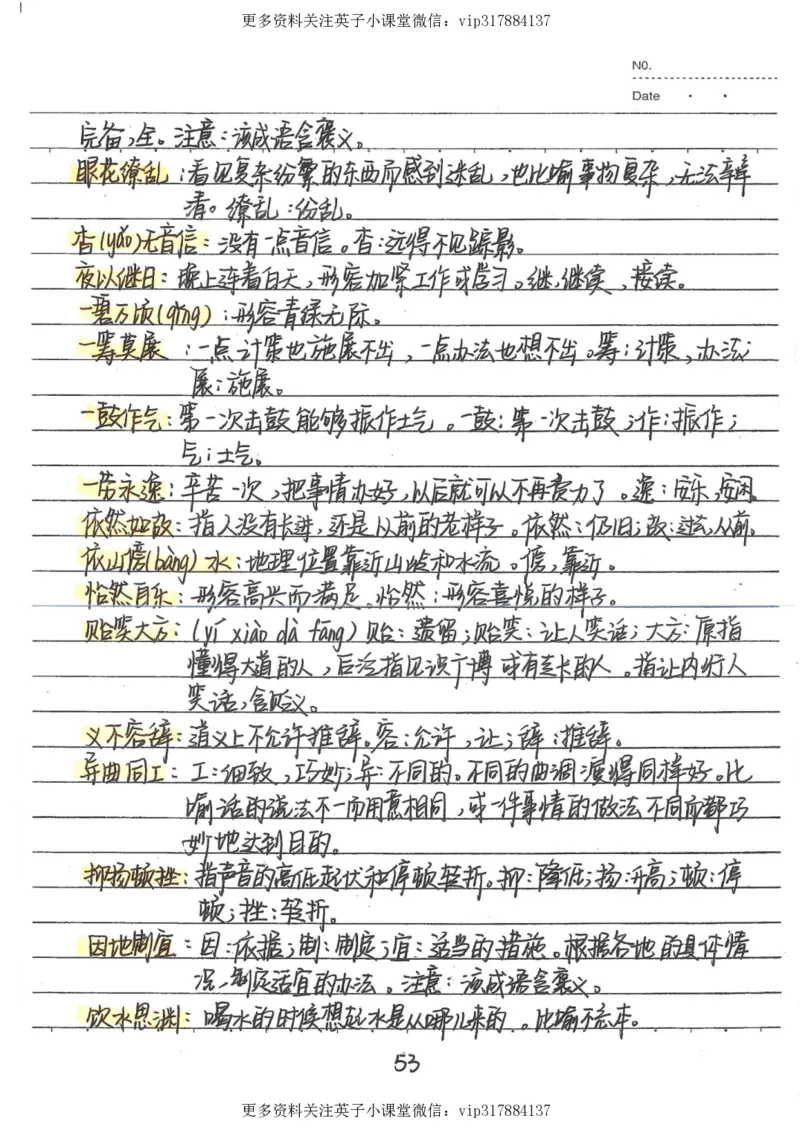 更多资料关注英子小课堂微信：vip317884137
NO.
Date
完备，全。注意：该成语含褒义。
眼花缭乱：看见复杂纷繁的东西而感到迷乱，也比喻事物复杂，无法辨
清。缭乱：纷乱。
杳(yǎo)无音信：没有一点音信。杳：远得不见踪影。
夜以继日：晚上连着白天，形容加紧工作或学习。继：继续，接续。
一碧万顷(qǐng)：形容青绿无际。
一筹莫展：一点计策也施展不出，一点办法也想不出。筹：计策，办法；
展：施展。
一鼓作气：第一次击鼓能够振作士气。一鼓：第一次击鼓；作：振作；
气：士气。
一劳永逸：辛苦一次，把事情办好，以后就可以不再费力了。逸：安乐，安闲。
依然如故：指人没有长进，还是从前的老样子。依然：仍旧；故：过去，从前。
依山傍(bàng)水：地理位置靠近山岭和水流。傍：靠近。
怡然自乐：形容高兴而满足。怡然：形容喜悦的样子。
贻笑大方：(yí xiào dà fāng)贻：遗留；贻笑：让人笑话；大方：原指
懂得大道的人，后泛指见识广博或有专长的人。指让内行人
笑话，含贬义。
义不容辞：道义上不允许推辞。容：允许，让；辞：推辞。
异曲同工：工：细致，巧妙；异：不同的。不同的曲调演得同样好。比
喻话的说法不一而用意相同，或一件事情的做法不同而都巧
妙地达到目的。
抑扬顿挫：指声音的高低起伏和停顿转折。抑：降低；扬：升高；顿：停
顿；挫：转折。
因地制宜：因：依据；制：制定；宜：适当的措施。根据各地的具体情
况，制定适宜的办法。注意：该成语含褒义。
饮水思渊：喝水的时候想起水是从哪儿来的。比喻不忘本。
53
更多资料关注英子小课堂微信：vip317884137